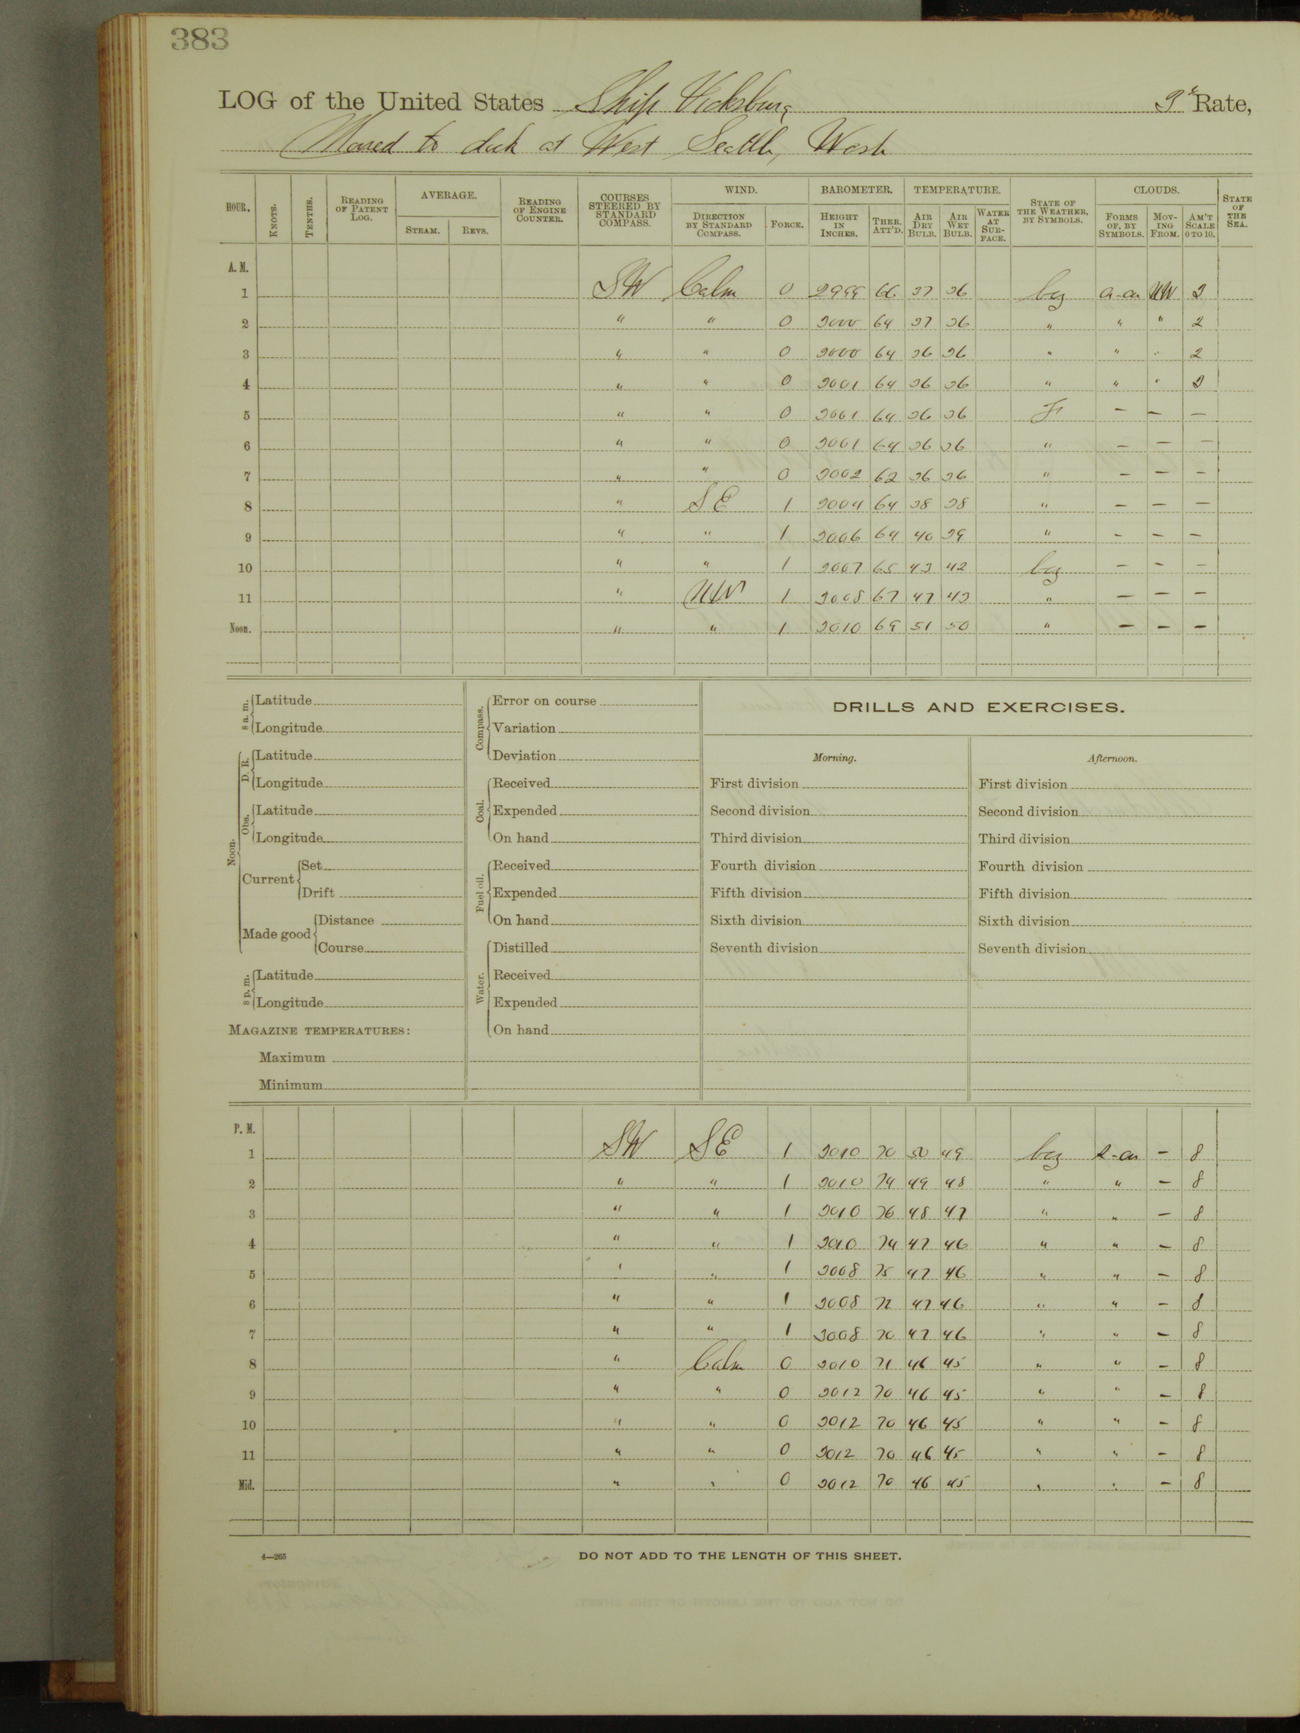 383
LOG of the United States Ship Vicksburg 3d Rate,
Moored to dock at West Seattle, Wash
HOUR. KNOTS. TENTHS. READING OF PATENT LOG. AVERAGE. STEAM. REVS. READING OF ENGINE COUNTER. COURSES STEERED BY STANDARD COMPASS. WIND. DIRECTION BY STANDARD COMPASS. FORCE. BAROMETER. HEIGHT IN INCHES. THER. ATT'D. TEMPERATURE. AIR DRY BULB. AIR WET BULB. WATER AT SURFACE. STATE OF THE WEATHER, BY SYMBOLS. CLOUDS. FORMS OF, BY SYMBOLS. MOVING FROM. AM'T SCALE 0 TO 10. STATE OF THE SEA.
A. M.
1 SW Calm 0 2999 66 37 36 bcz a-cu NW 2
2 " " 0 3000 64 37 36 " " " 2
3 " " 0 3000 64 36 36 " " " 2
4 " " 0 3001 64 36 36 " " " 2
5 " " 0 3001 64 36 36 F — — —
6 " " 0 3001 64 36 36 " — — —
7 " " 0 3002 62 36 36 " — — —
8 " SE 1 3004 64 38 38 " — — —
9 " " 1 3006 64 40 39 " — — —
10 " " 1 3007 65 43 42 bcz — — —
11 " NW 1 3008 67 47 43 " — — —
Noon. " " 1 3010 69 51 50 " — — —
8 a. m. Latitude
Longitude
Noon. D. R. Latitude
Longitude
Obs. Latitude
Longitude
Current Set
Drift
Made good Distance
Course
8 p. m. Latitude
Longitude
MAGAZINE TEMPERATURES:
Maximum
Minimum
Compass. Error on course
Variation
Deviation
Coal. Received
Expended
On hand
Fuel oil. Received
Expended
On hand
Water. Distilled
Received
Expended
On hand
DRILLS AND EXERCISES.
Morning.
First division
Second division
Third division
Fourth division
Fifth division
Sixth division
Seventh division
Afternoon.
First division
Second division
Third division
Fourth division
Fifth division
Sixth division
Seventh division
P. M.
1 SW SE 1 3010 70 50 49 bcz — 8
2 " " 1 3010 74 49 48 " " — 8
3 " " 1 3010 76 48 47 " " — 8
4 " " 1 3010 74 47 46 " " — 8
5 " " 1 3008 75 47 46 " " — 8
6 " " 1 3008 72 47 46 " " — 8
7 " " 1 3008 70 47 46 " " — 8
8 " Calm 0 3010 71 46 45 " " — 8
9 " " 0 3012 70 46 45 " " — 8
10 " " 0 3012 70 46 45 " " — 8
11 " " 0 3012 70 46 45 " " — 8
Mid. " " 0 3012 70 46 45 " " — 8
4—265
DO NOT ADD TO THE LENGTH OF THIS SHEET.